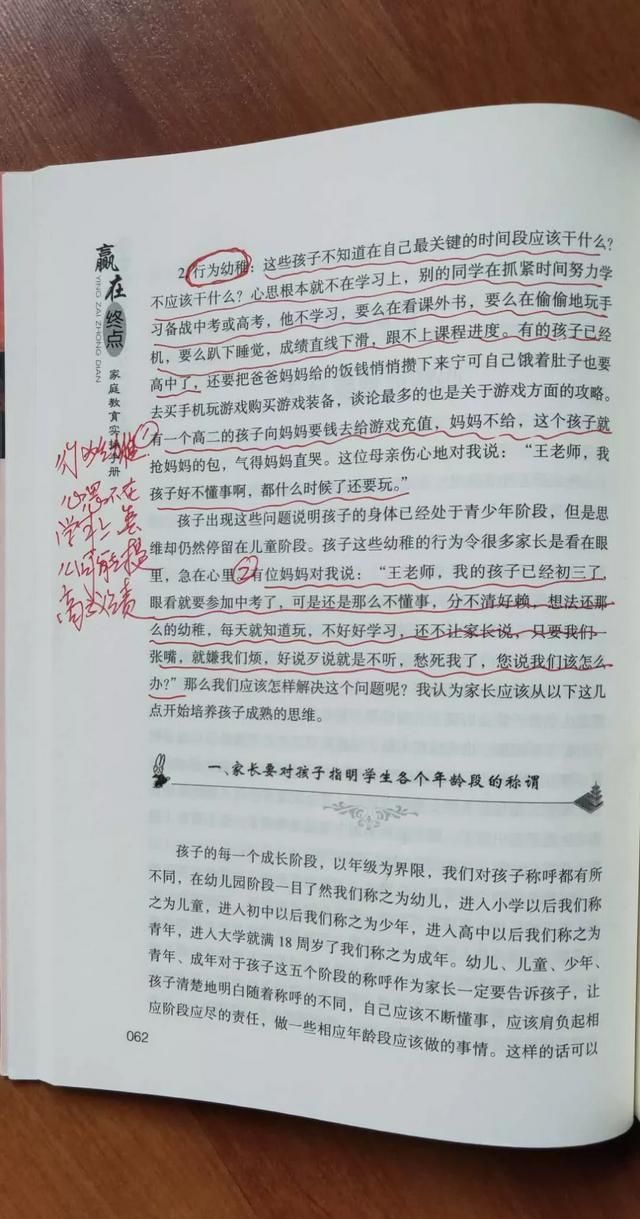 赢在终点
YING ZAI ZHONG DIAN
家庭教育实
册
2. 行为幼稚：这些孩子不知道在自己最关键的时间段应该干什么？
不应该干什么？心思根本就不在学习上，别的同学在抓紧时间努力学
习备战中考或高考，他不学习，要么在看课外书，要么在偷偷地玩手
机，要么趴下睡觉，成绩直线下滑，跟不上课程进度。有的孩子已经
高中了，还要把爸爸妈妈给的饭钱悄悄攒下来宁可自己饿着肚子也要
去买手机玩游戏购买游戏装备，谈论最多的也是关于游戏方面的攻略。
有一个高二的孩子向妈妈要钱去给游戏充值，妈妈不给，这个孩子就
抢妈妈的包，气得妈妈直哭。这位母亲伤心地对我说：“王老师，我
孩子好不懂事啊，都什么时候了还要玩。”
孩子出现这些问题说明孩子的身体已经处于青少年阶段，但是思
维却仍然停留在儿童阶段。孩子这些幼稚的行为令很多家长是看在眼
里，急在心里②有位妈妈对我说：“王老师，我的孩子已经初三了，
眼看就要参加中考了，可是还是那么不懂事，分不清好赖，想法还那
么的幼稚，每天就知道玩，不好好学习，还不让家长说，只要我们一
张嘴，就嫌我们烦，好说歹说就是不听，愁死我了，您说我们该怎么
办？”那么我们应该怎样解决这个问题呢？我认为家长应该从以下这几
点开始培养孩子成熟的思维。
行为幼稚①
心思不在
学习上 怎
么可能提
高成绩
一、家长要对孩子指明学生各个年龄段的称谓
孩子的每一个成长阶段，以年级为界限，我们对孩子称呼都有所
不同，在幼儿园阶段一目了然我们称之为幼儿，进入小学以后我们称
之为儿童，进入初中以后我们称之为少年，进入高中以后我们称之为
青年，进入大学就满 18 周岁了我们称之为成年。幼儿、儿童、少年、
青年、成年对于孩子这五个阶段的称呼作为家长一定要告诉孩子，让
孩子清楚地明白随着称呼的不同，自己应该不断懂事，应该肩负起相
应阶段应尽的责任，做一些相应年龄段应该做的事情。这样的话可以
062